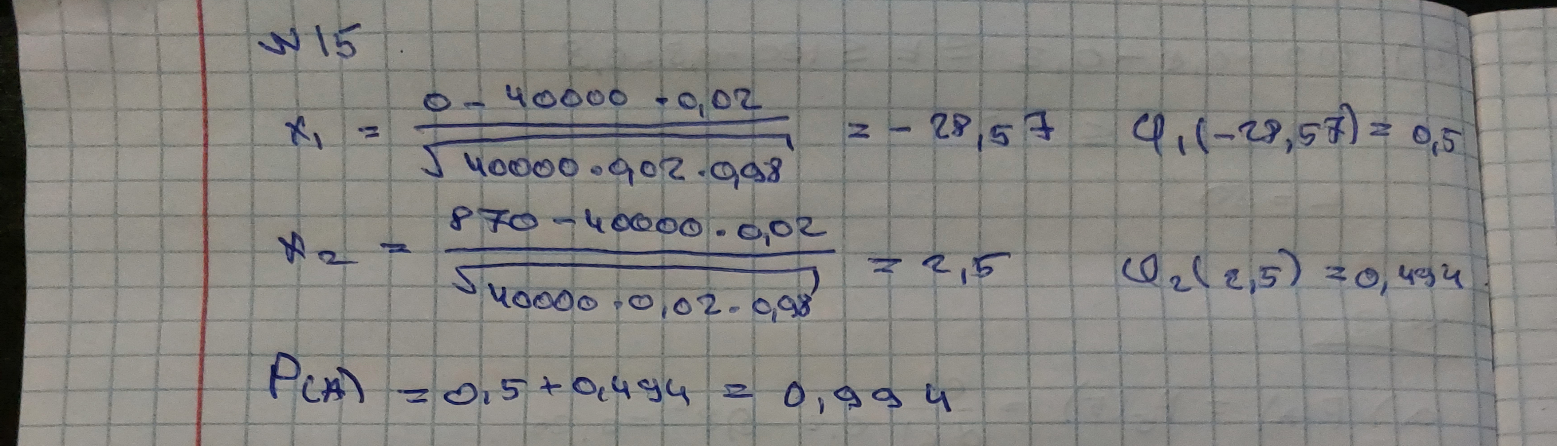 № 15
x₁ = (0 - 40000 · 0,02) / √(40000 · 0,02 · 0,98) = - 28,57 φ₁(-28,57) = 0,5
x₂ = (870 - 40000 · 0,02) / √(40000 · 0,02 · 0,98) = 2,5 φ₂(2,5) = 0,494
P(A) = 0,5 + 0,494 = 0,994